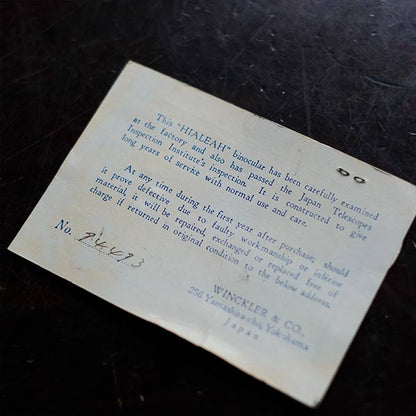 This "HIALEAH" binocular has been carefully examined
at the factory and also has passed the Japan Telescopes
Inspection Institute's inspection. It is constructed to give
long years of service with normal use and care.
At any time during the first year after purchase; should
it prove defective due to faulty workmanship or inferior
material, it will be repaired, exchanged or replaced free of
charge if returned in original condition to the below address.
No.
WINCKLER & CO.,
256 Yamashita-cho, Yokohama
Japan